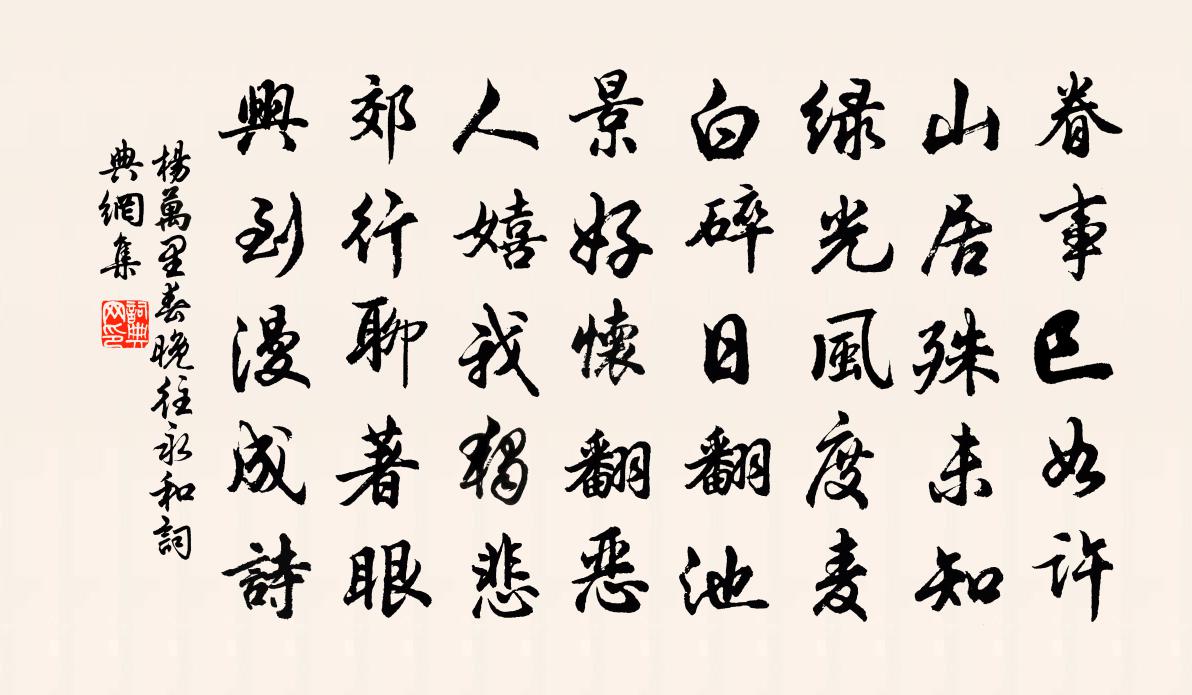 春事已如許
山居殊未知
緑光風度麦
白碎日翻池
景好懷翻恶
人嬉我獨悲
郊行聊著眼
興到漫成詩
楊萬里春晚往永和詞
典網集
詞典
网印